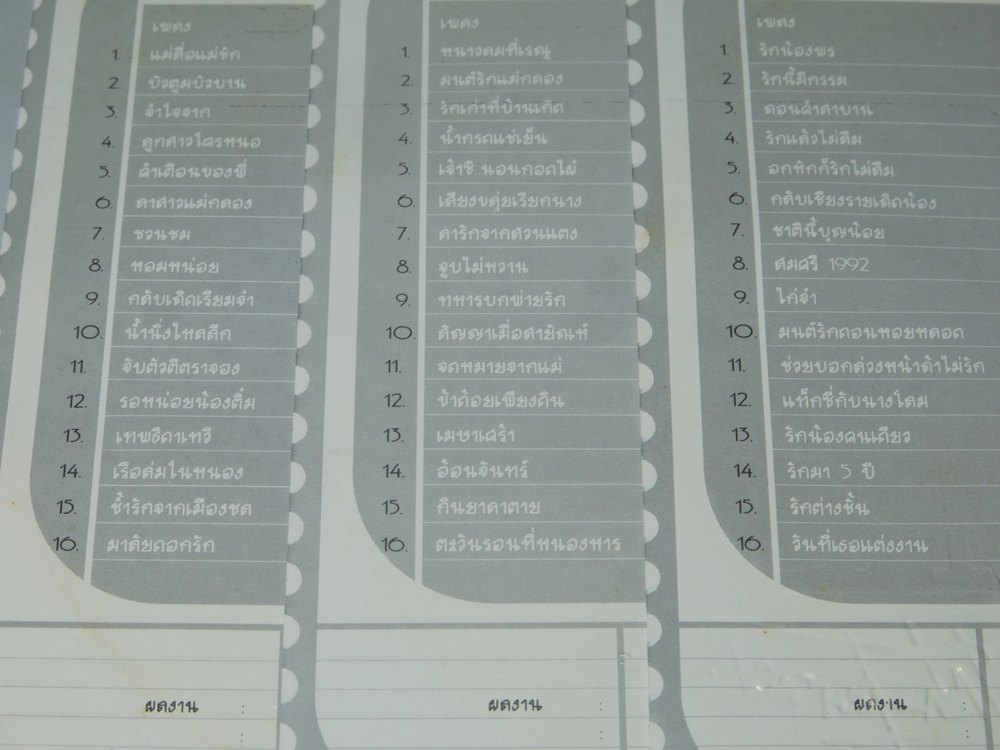 เพลง
1. แม่สื่อแม่ชัก
2. บัวตูมบัวบาน
3. จำใจจาก
4. ลูกสาวใครหนอ
5. คำเตือนของพี่
6. ลาสาวแม่กลอง
7. ชวนชม
8. หอมหน่อย
9. กลับเถิดเรียมจ๋า
10. น้ำนิ่งไหลลึก
11. จับติ้วตีตราจอง
12. รอหน่อยน้องติ๋ม
13. เทพธิดาเทวี
14. เรือล่มในหนอง
15. ช้ำรักจากเมืองชล
16. มาลัยดอกรัก
ผลงาน :
เพลง
1. หนาวลมที่เรณู
2. มนต์รักแม่กลอง
3. รักเก่าที่บ้านเกิด
4. น้ำกรดแช่เย็น
5. เจ้าชิ..นอนกอดไผ่
6. เสียงขลุ่ยเรียกนาง
7. ลารักจากสวนแตง
8. จูบไม่หวาน
9. ทหารบกพ่ายรัก
10. สัญญาเมื่อสายัณห์
11. จดหมายจากแม่
12. ข้าด้อยเพียงดิน
13. เมษาเศร้า
14. อ้อนจันทร์
15. กินยาตาย
16. ตะวันรอนที่หนองหาร
ผลงาน :
เพลง
1. รักน้องพร
2. รักนี้มีกรรม
3. ลอนลำตาบาน
4. รักแล้วไม่ลืม
5. อกหักก็รักไม่ลืม
6. กลับเชียงรายเถิดน้อง
7. ชาตินี้บุญน้อย
8. สมศรี 1992
9. ไก่จ๋า
10. มนต์รักดอนหอยหลอด
11. ช่วยบอกล่วงหน้าถ้าไม่รัก
12. แท็กซี่กับนางโลม
13. รักน้องคนเดียว
14. รักมา 5 ปี
15. รักต่างชั้น
16. วันที่เธอแต่งงาน
ผลงาน :